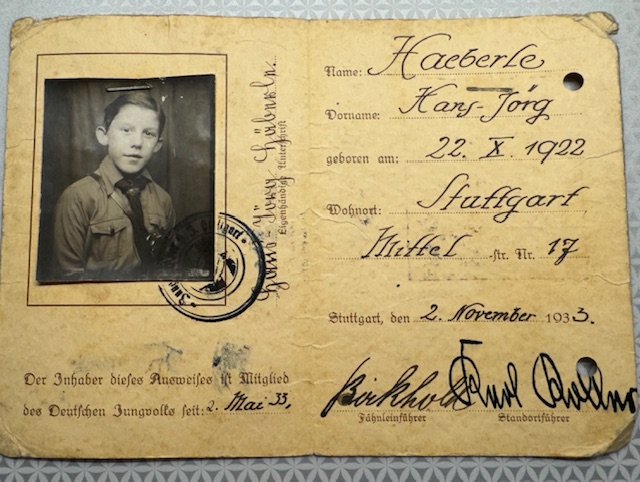 Hans-Jörg Häberle.
Eigenhändige Unterschrift
Der Inhaber dieses Ausweises ist Mitglied
des Deutschen Jungvolks seit: 2. Mai 33,
Name: Haeberle
Vorname: Hans-Jörg
geboren am: 22. X. 1922
Wohnort: Stuttgart
Mittel -str. Nr. 17
Stuttgart, den 2. November 1933.
Birkhold Karl
Fähnleinführer Standortführer